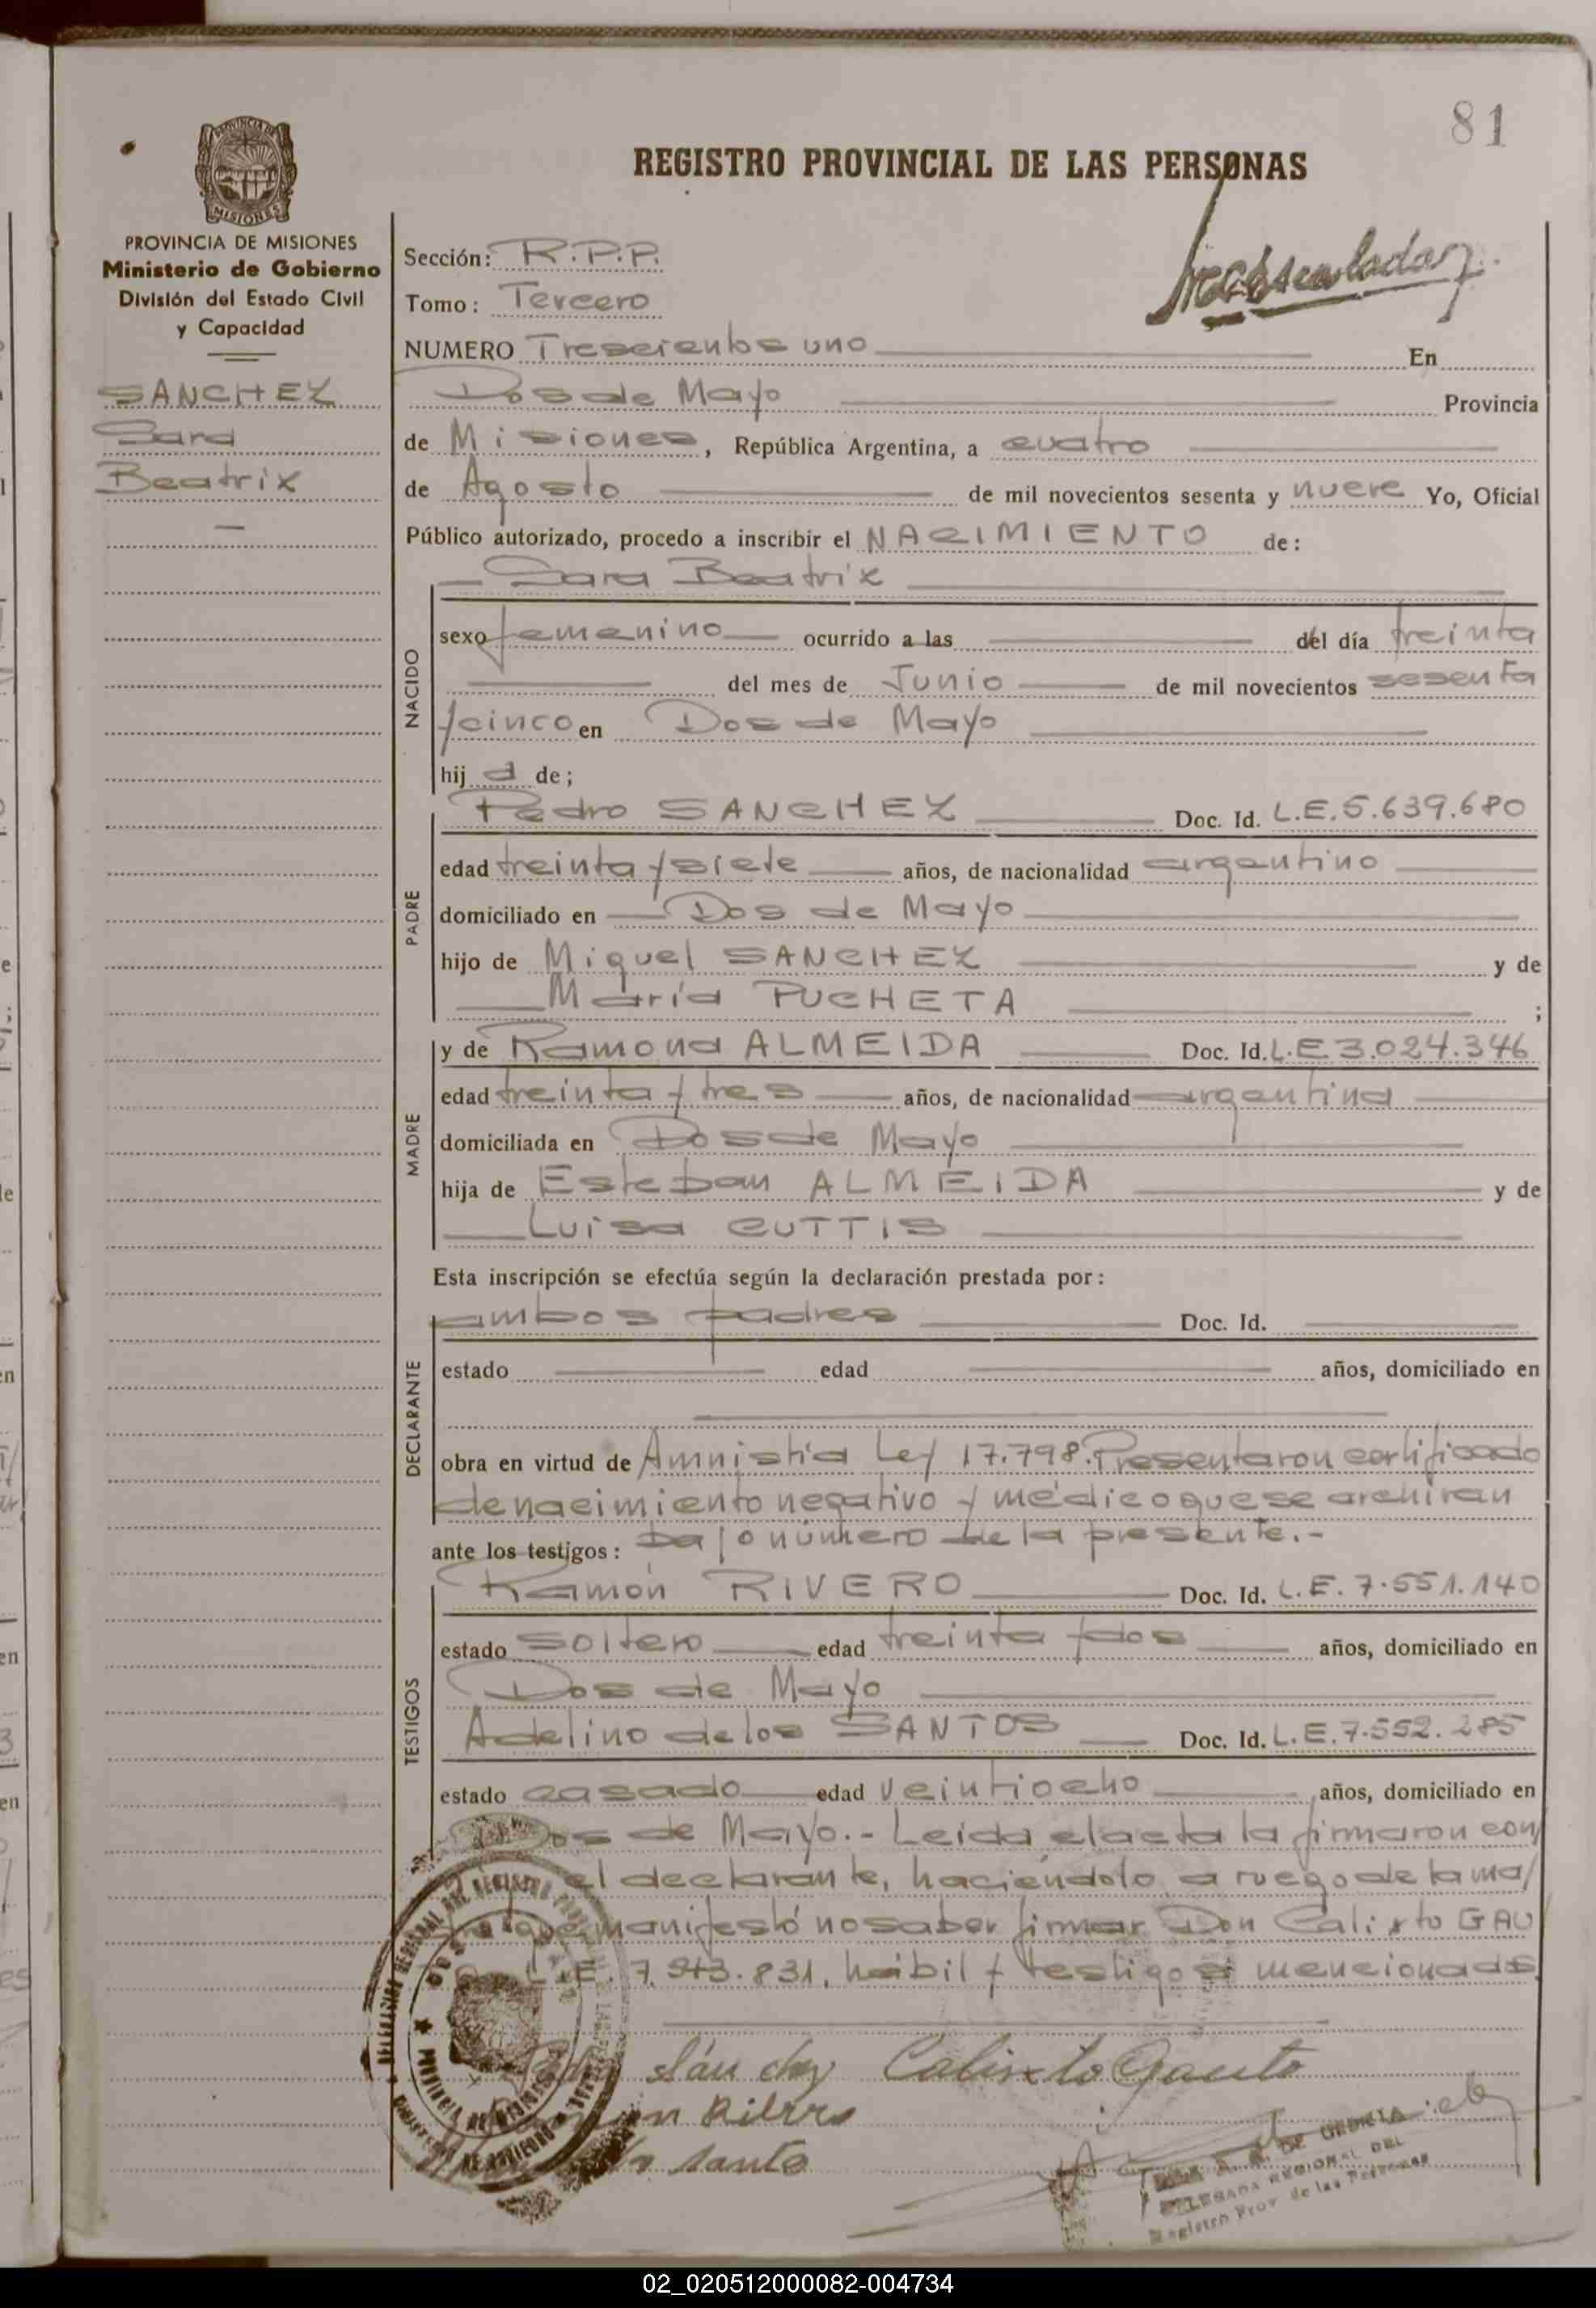 81
REGISTRO PROVINCIAL DE LAS PERSONAS
PROVINCIA DE MISIONES
Ministerio de Gobierno
División del Estado Civil
y Capacidad
SANCHEZ
Sara
Beatrix
Sección: R.P.P.
Tomo: Tercero
NUMERO Trescientos uno En
Dos de Mayo Provincia
de Misiones, República Argentina, a cuatro
de Agosto de mil novecientos sesenta y nueve Yo, Oficial
Público autorizado, procedo a inscribir el NACIMIENTO de:
Sara Beatrix
NACIDO
sexo femenino ocurrido a las del día treinta
del mes de Junio de mil novecientos sesenta
y cinco en Dos de Mayo
hij a de;
PADRE
Pedro SANCHEZ Doc. Id. L.E. 5.639.680
edad treinta y siete años, de nacionalidad argentino
domiciliado en Dos de Mayo
hijo de Miguel SANCHEZ y de
María PUCHETA ;
MADRE
y de Ramona ALMEIDA Doc. Id. L.E 3.024.346
edad treinta y tres años, de nacionalidad argentina
domiciliada en Dos de Mayo
hija de Esteban ALMEIDA y de
Luisa CUTTIS
Esta inscripción se efectúa según la declaración prestada por:
DECLARANTE
ambos padres Doc. Id.
estado edad años, domiciliado en
obra en virtud de Amnistía Ley 17.798. Presentaron certificado
de nacimiento negativo y médico que se archivan
ante los testigos: bajo número de la presente.-
TESTIGOS
Ramón RIVERO Doc. Id. L.E. 7.551.140
estado soltero edad treinta y dos años, domiciliado en
Dos de Mayo
Adelino de los SANTOS Doc. Id. L.E. 7.552.285
estado casado edad veintiocho años, domiciliado en
Dos de Mayo.- Leida el acta la firmaron con
el declarante, haciéndolo a ruego de la ma/
que manifestó no saber firmar Don Calixto GAU
L.E. 7.943.831, hábil y testigos mencionados
Sánchez Calixto Gauto
DELEGADA REGIONAL DEL
Registro Prov. de las Personas
02_020512000082-004734